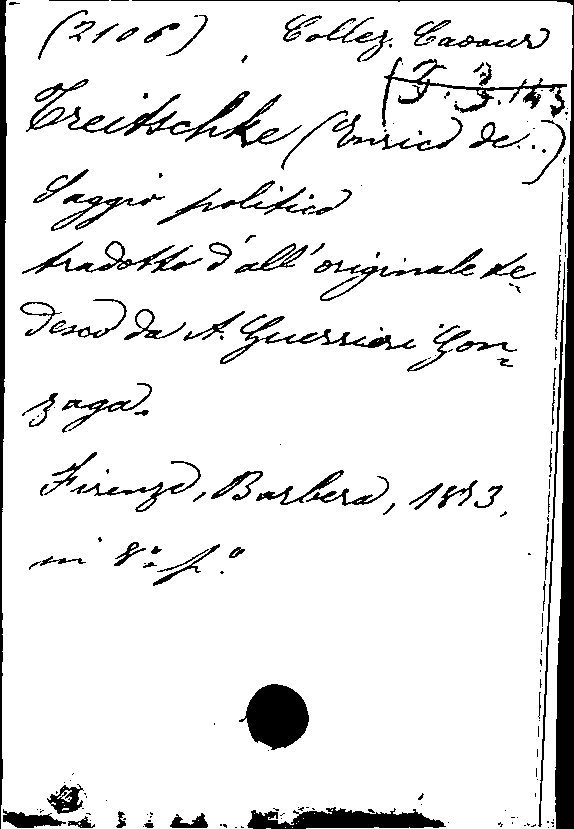 (2106) Collez. Cavour
F. 3. 143
Treitschke (Enrico de...)
Saggio politico
tradotto d'all'originale te
desco da A. Guerrieri Gon
zaga.
Firenze, Barbera, 1873,
in 8° p.°